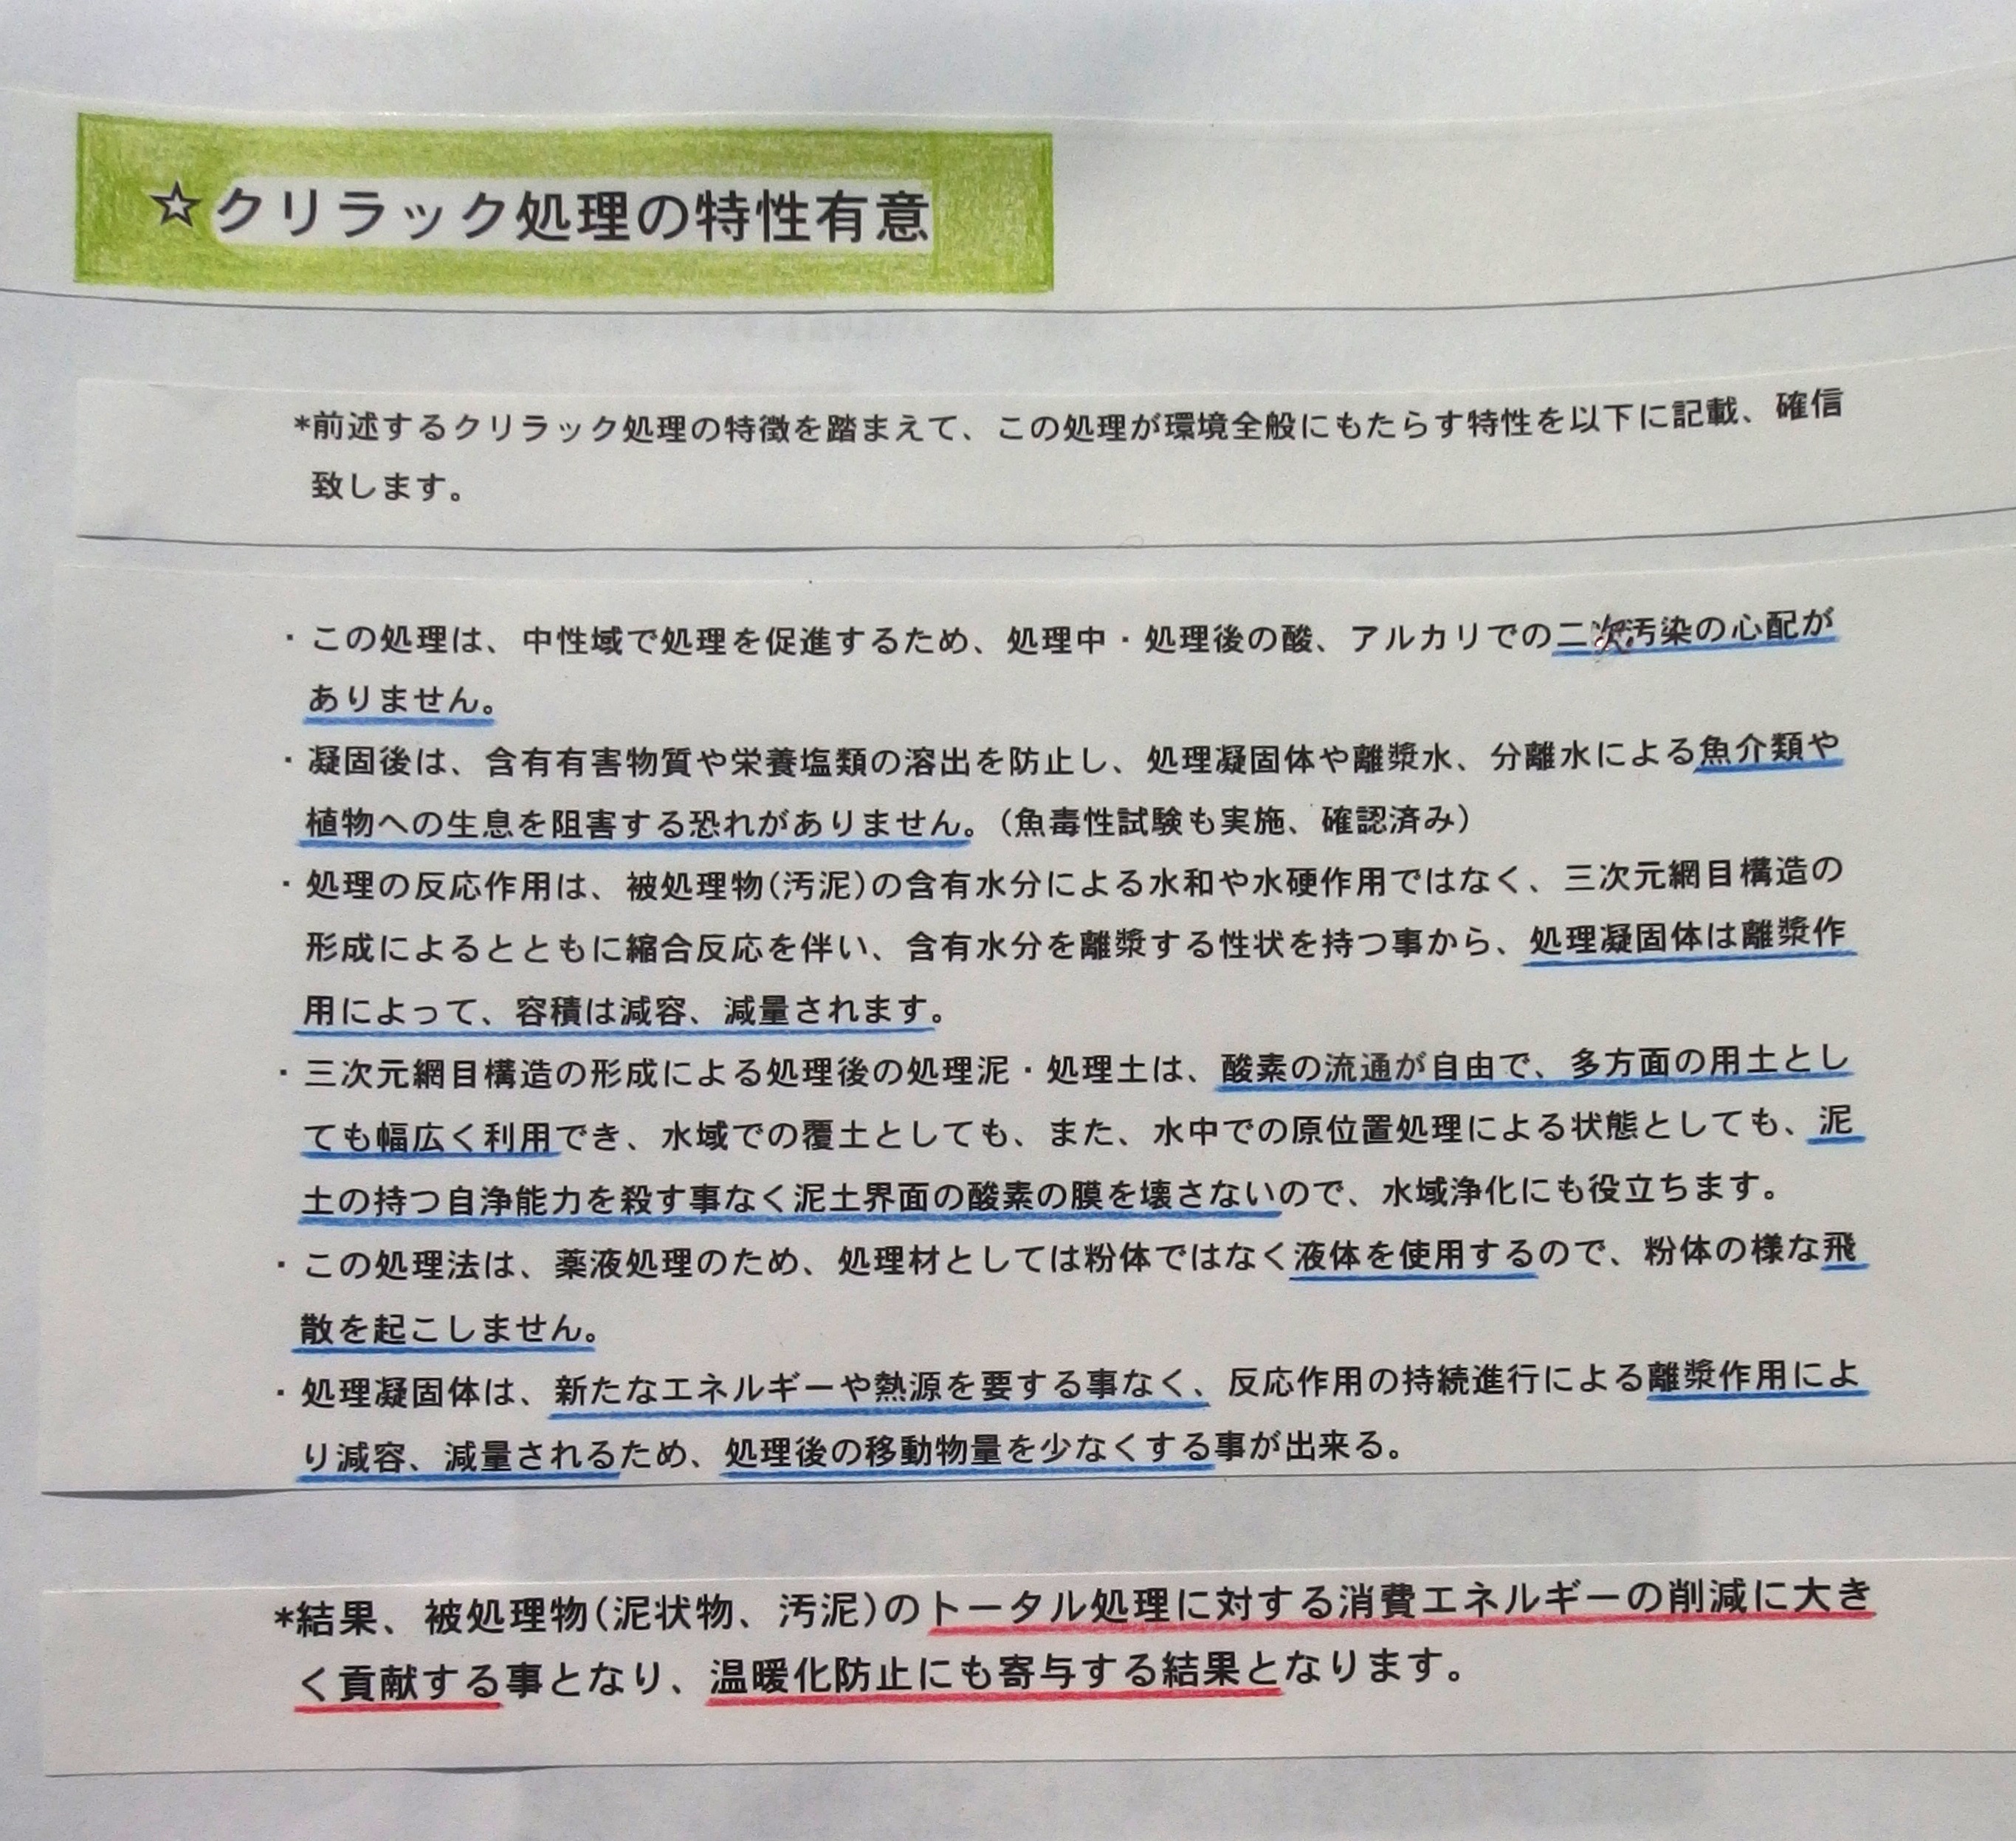 ☆クリラック処理の特性有意
*前述するクリラック処理の特徴を踏まえて、この処理が環境全般にもたらす特性を以下に記載、確信
致します。
・この処理は、中性域で処理を促進するため、処理中・処理後の酸、アルカリでの二次汚染の心配が
ありません。
・凝固後は、含有有害物質や栄養塩類の溶出を防止し、処理凝固体や離漿水、分離水による魚介類や
植物への生息を阻害する恐れがありません。(魚毒性試験も実施、確認済み)
・処理の反応作用は、被処理物(汚泥)の含有水分による水和や水硬作用ではなく、三次元網目構造の
形成によるとともに縮合反応を伴い、含有水分を離漿する性状を持つ事から、処理凝固体は離漿作
用によって、容積は減容、減量されます。
・三次元網目構造の形成による処理後の処理泥・処理土は、酸素の流通が自由で、多方面の用土とし
ても幅広く利用でき、水域での覆土としても、また、水中での原位置処理による状態としても、泥
土の持つ自浄能力を殺す事なく泥土界面の酸素の膜を壊さないので、水域浄化にも役立ちます。
・この処理法は、薬液処理のため、処理材としては粉体ではなく液体を使用するので、粉体の様な飛
散を起こしません。
・処理凝固体は、新たなエネルギーや熱源を要する事なく、反応作用の持続進行による離漿作用によ
り減容、減量されるため、処理後の移動物量を少なくする事が出来る。
*結果、被処理物(泥状物、汚泥)のトータル処理に対する消費エネルギーの削減に大き
く貢献する事となり、温暖化防止にも寄与する結果となります。